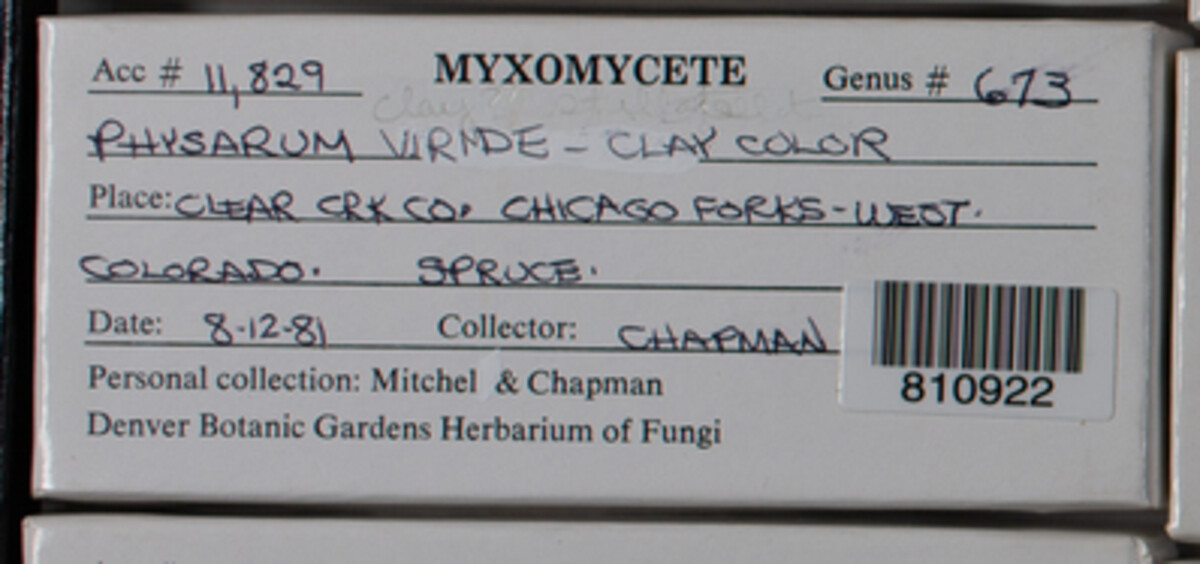 Acc # 11,829 MYXOMYCETE Genus # 673
PHYSARUM VIRIDE - CLAY COLOR
Place: CLEAR CRK CO. CHICAGO FORKS - WEST.
COLORADO. SPRUCE.
Date: 8-12-81 Collector: CHAPMAN
810922
Personal collection: Mitchel & Chapman
Denver Botanic Gardens Herbarium of Fungi